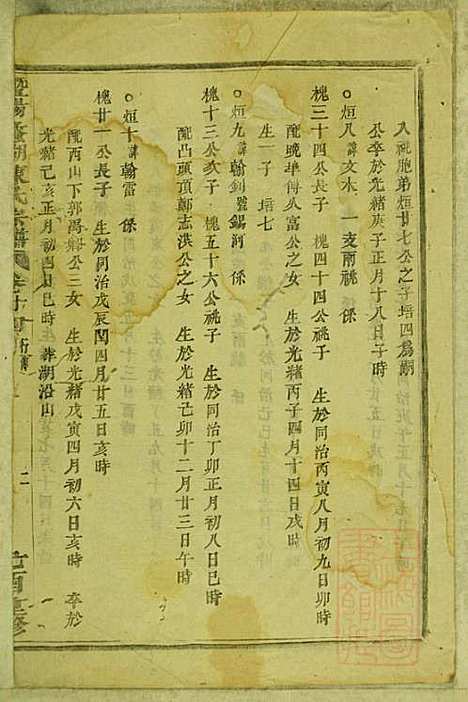 入祧胞弟烜廿七公之子培四爲嗣
公卒於光緒庚子正月十八日子時
烜八諱文木 一支兩祧 係
槐三十四公長子 槐四十四公祧子 生於同治丙寅八月初九日卯時
配晚華傅八富公之女 生於光緒丙子四月十四日戌時
生一子 培七
烜九諱翰釗號錫河 係
槐十三公次子 槐五十六公祧子 生於同治丁卯正月初八日巳時
配凸頭頂鄭志洪公之女 生於光緒己卯十二月廿三日午時
烜十諱翰雷 係
槐廿一公長子 生於同治戊辰閏四月廿五日亥時
配西山下郭禹公三女 生於光緒戊寅四月初六日亥時 卒於
光緒己亥正月初四日巳時 葬湖沿山
暨陽 湖陳氏宗譜
二
己酉重修